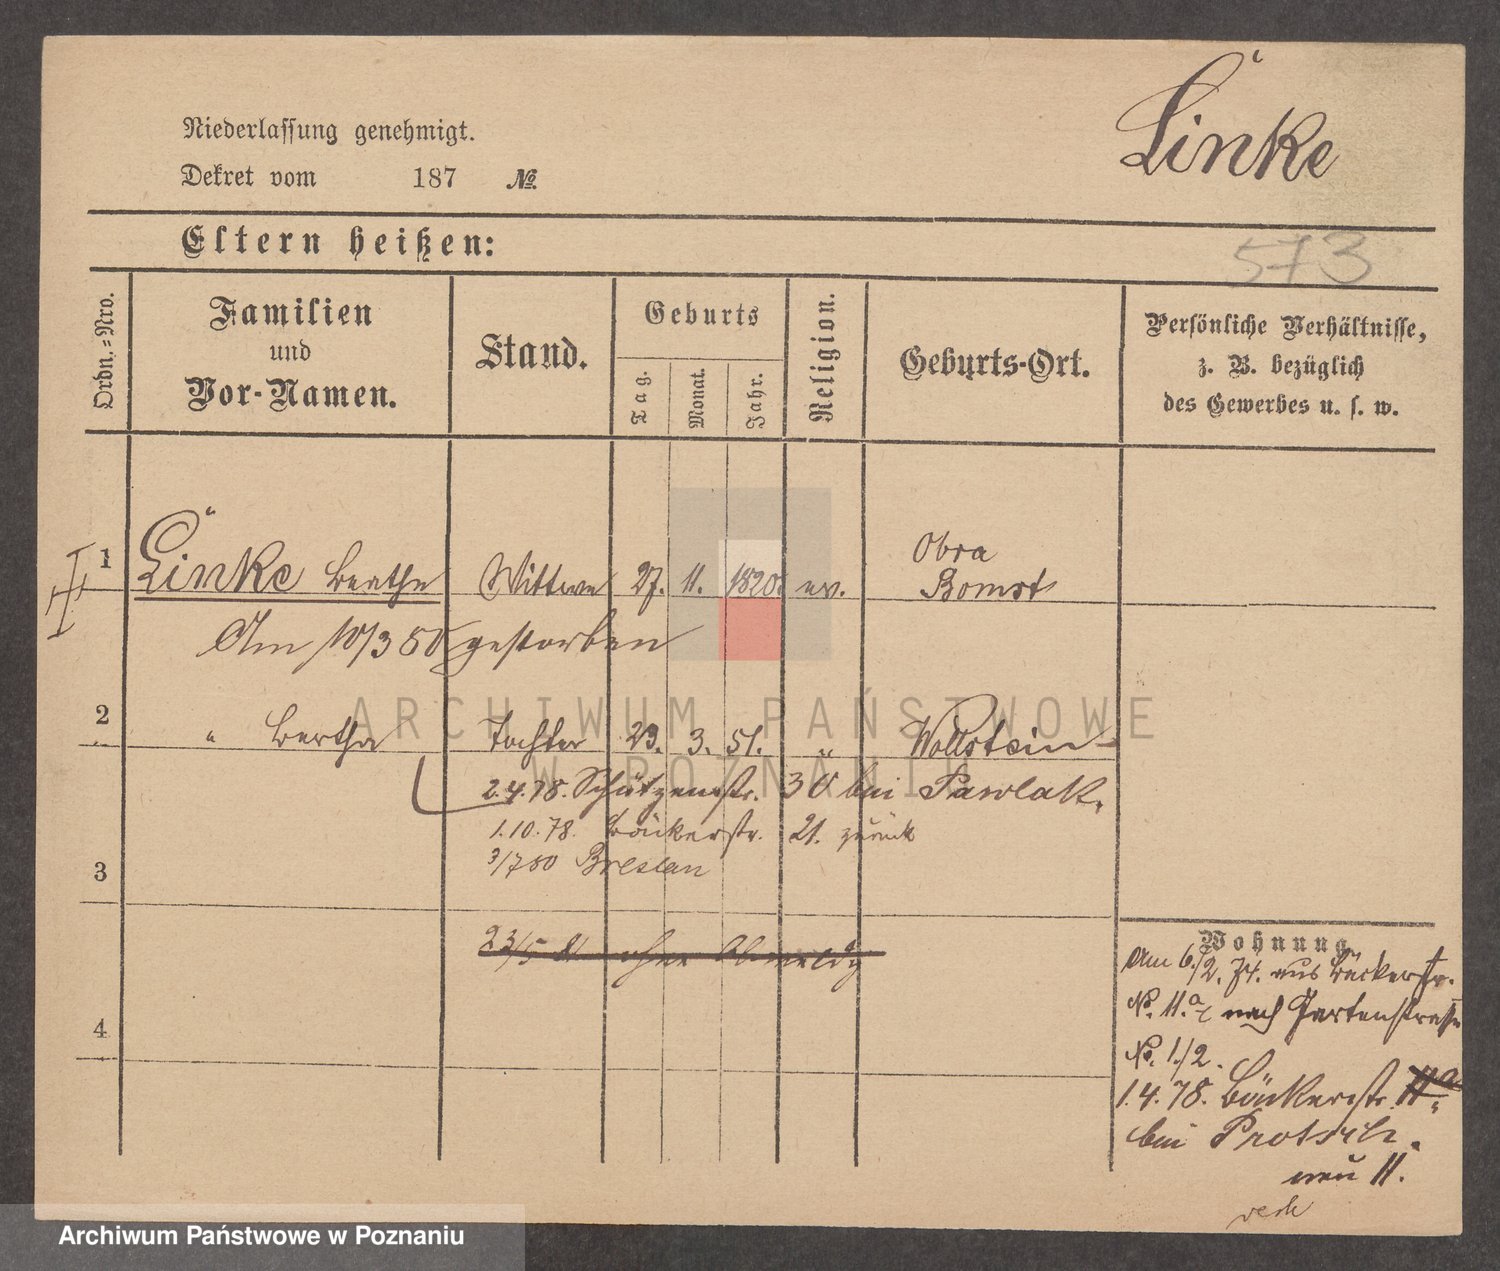 Linke
Niederlassung genehmigt.
Dekret vom 187 №.
573
Eltern heißen:
Ordn.-Nro.
Familien
und
Vor-Namen.
Stand.
Geburts
Tag.
Monat.
Jahr.
Religion.
Geburts-Ort.
Persönliche Verhältnisse,
z. B. bezüglich
des Gewerbes u. s. w.
1 Linke Beathe Wittwe 27. 11. 1820. ev. Obra
Bomst
Am 10/3 80 gestorben
2 " Bertha Tochter 23. 3. 51. " Wollstein
2.4.78. Schützenstr. 30 bei Pawlak.
1.10.78. Bäckerstr. 21. zurück
3/7 80 Breslau
3
23/5 81 ohne Abmeldg
4
Wohnung
Am 6./2. 74. aus Bäckerstr.
No. 11.a nach Gartenstrasse
No. 1./2.
1.4.78. Bäckerstr. 11a
bei
neu 11.
ARCHIWUM PAŃSTWOWE
W POZNANIU
Archiwum Państwowe w Poznaniu